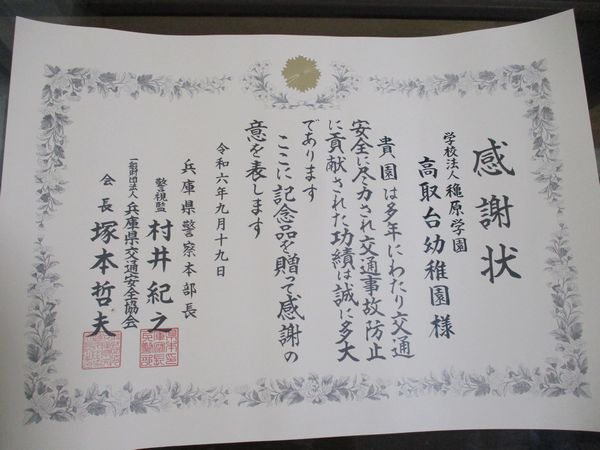 感謝状
学校法人 穐原学園
高取台幼稚園 様
貴園は多年にわたり交通
安全に尽力され交通事故防止
に貢献された功績は誠に多大
であります
ここに記念品を贈って感謝の
意を表します
令和六年九月十九日
兵庫県警察本部長
警視監 村井紀之
一般財団法人 兵庫県交通安全協会
会長 塚本哲夫